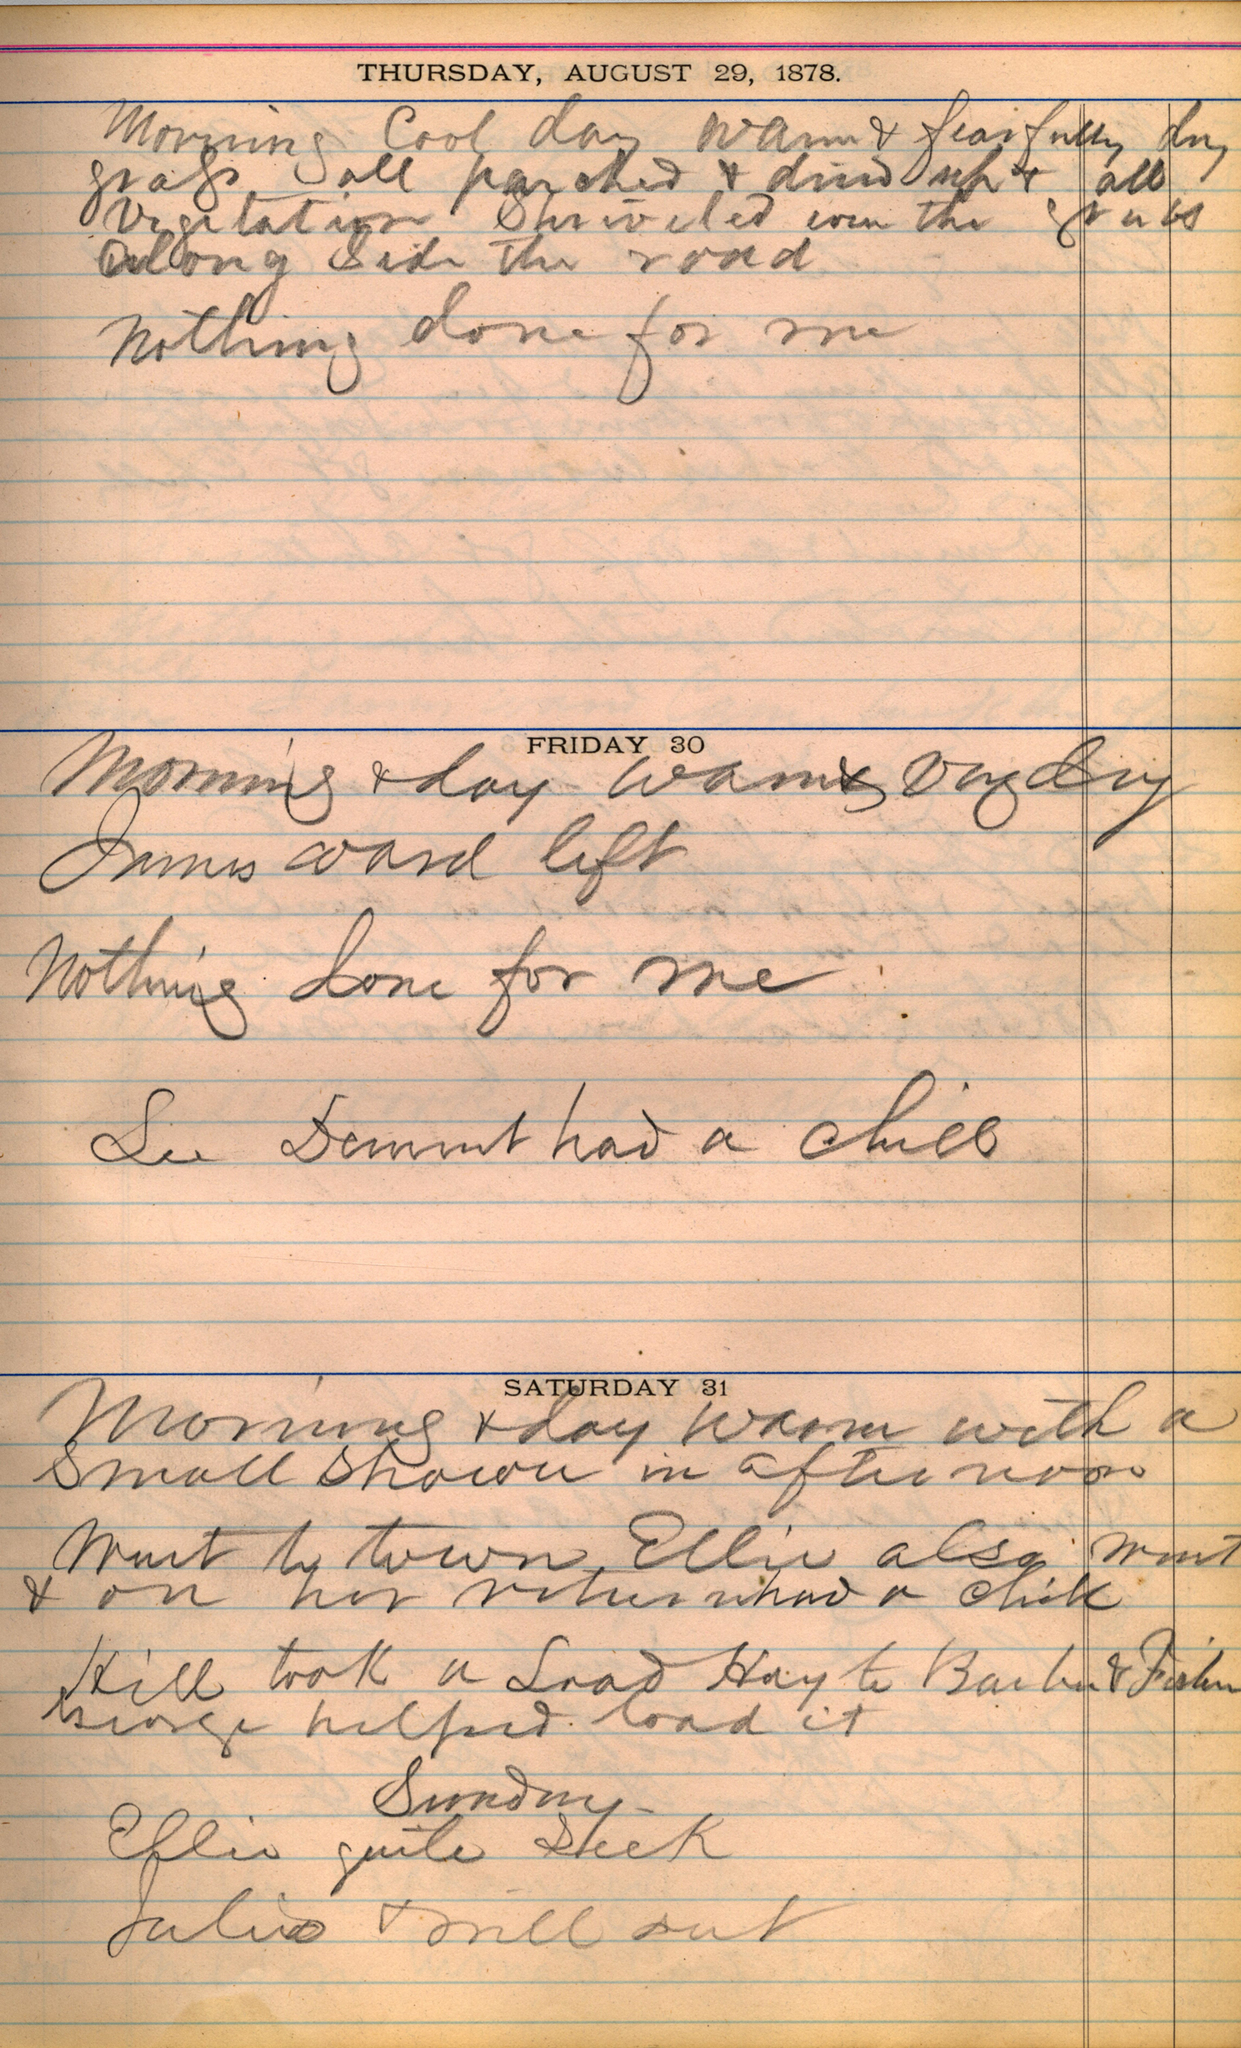 THURSDAY, AUGUST 29, 1878.
Morning Cool day warm & fearfully dry
grass all parched & dried up & all
vegetation Shriveled even the
along Side the road
Nothing done for me
FRIDAY 30
Morning & day warm & very dry
James Ward left
Nothing done for me
Lee Demmt had a chill
SATURDAY 31
Morning & day warm with a
Small Shower in afternoon
Went to town Ellie also went
& on her return had a chill
Hill took a Load Hay to Barber & Fisher
George helped load it
Sunday
Effie quite Sick
Julia & Will out